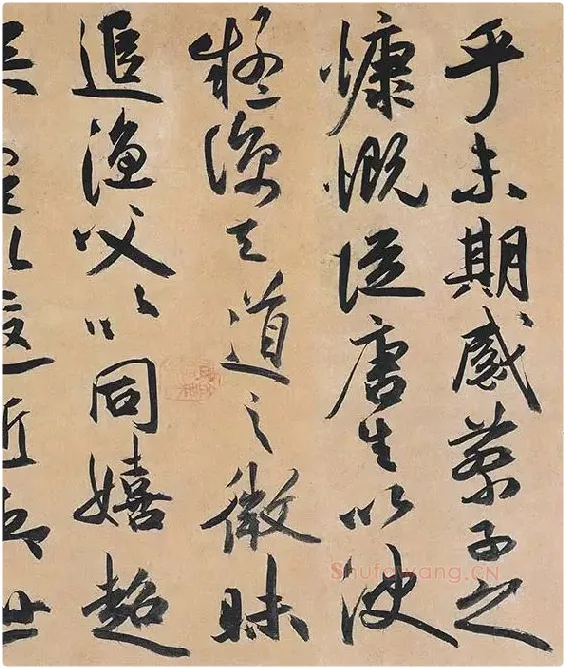 乎未期感蔡子之
慷慨從唐生以決
疑諒天道之微昧
追漁父以同嬉超
Shufawang.CN